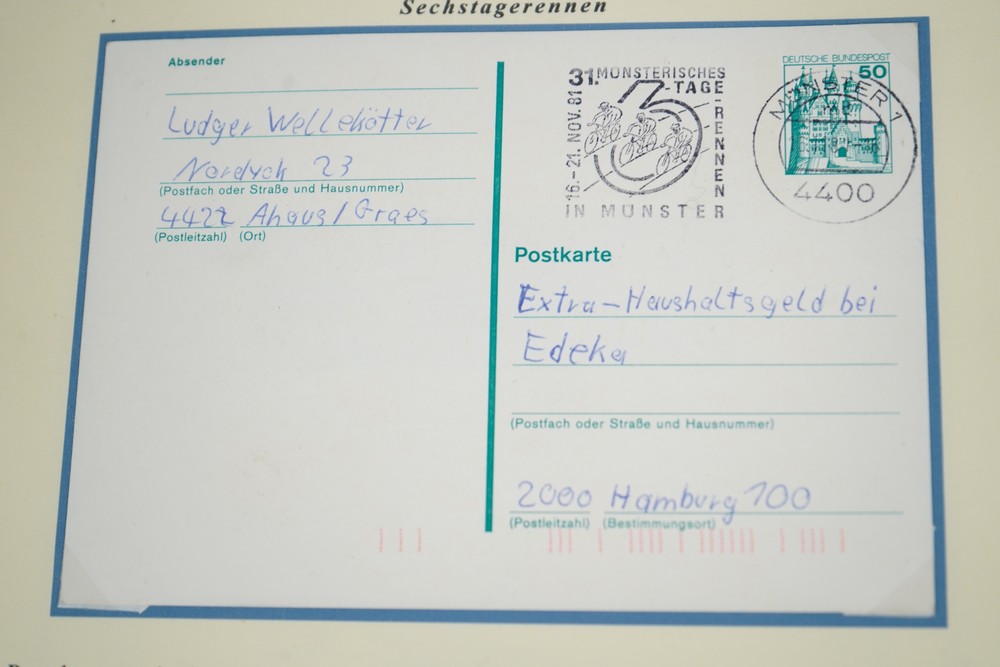 Sechstagerennen
Absender
Ludger Wellekötter
23
(Postfach oder Straße und Hausnummer)
4422 Ahaus/Graes
(Postleitzahl) (Ort)
31. MÜNSTERISCHES
6-TAGE-RENNEN
16.-21. NOV. 81
IN MÜNSTER
DEUTSCHE BUNDESPOST
50
MÜNSTER 1
4400
Postkarte
Extra-Haushaltsgeld bei
Edeka
(Postfach oder Straße und Hausnummer)
2000 Hamburg 100
(Postleitzahl) (Bestimmungsort)